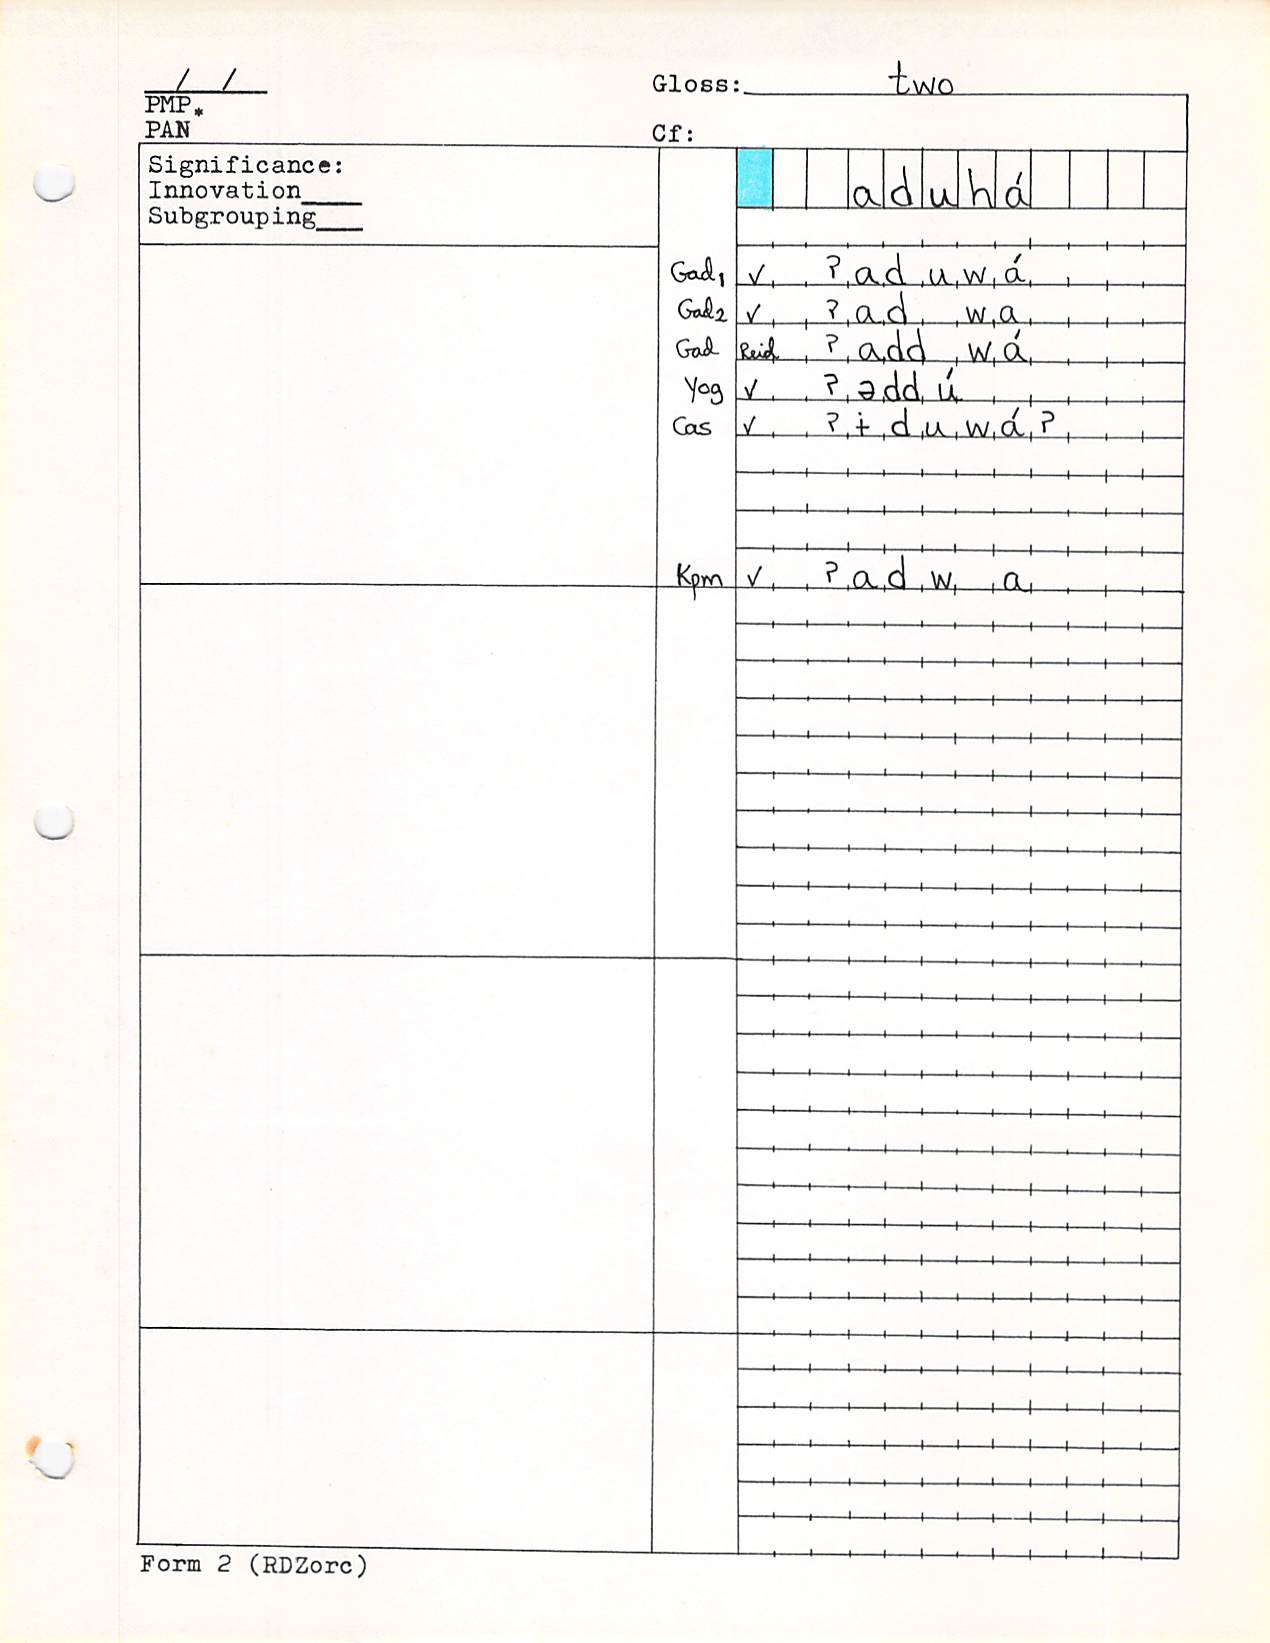 __/__/__ Gloss: two
PMP*
PAN Cf:
Significance:
Innovation____
Subgrouping___
aduhá
Gad1 ✓ ʔaduwá
Gad2 ✓ ʔad wa
Gad Reid ʔadd wá
Yog ✓ ʔəddú
Cas ✓ ʔɨduwáʔ
Kpm ✓ ʔadw a
Form 2 (RDZorc)